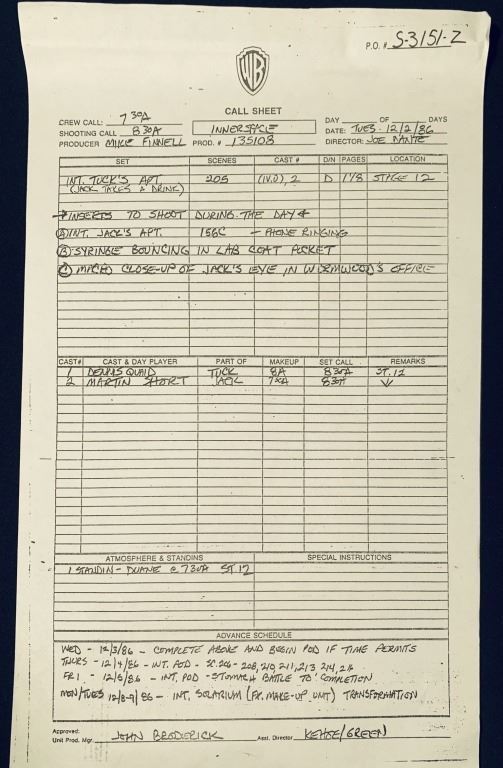 P.O. # S-3151-Z
WB
CALL SHEET
CREW CALL: 7 30A
SHOOTING CALL 8 30A
PRODUCER MIKE FINNELL
INNERSPACE
PROD. # 135108
DAY OF DAYS
DATE: TUES. 12/2/86
DIRECTOR: JOE DANTE
SET SCENES CAST # D/N PAGES LOCATION
INT. TUCK'S APT. 205 (1V.O), 2 D 1 1/8 STAGE 12
(JACK TAKES A DRINK)
INSERTS TO SHOOT DURING THE DAY
A INT. JACK'S APT. 156C - PHONE RINGING
B SYRINGE BOUNCING IN LAB COAT POCKET
C CLOSE-UP OF JACK'S EYE IN WORMWOOD'S OFFICE
CAST# CAST & DAY PLAYER PART OF MAKEUP SET CALL REMARKS
1 DENNIS QUAID TUCK 8A 8 30A ST. 12
2 MARTIN SHORT JACK 8 30A
ATMOSPHERE & STANDINS SPECIAL INSTRUCTIONS
1 STANDIN - DUANE @ 7 30A ST 12
ADVANCE SCHEDULE
WED - 12/3/86 - COMPLETE ABOVE AND BEGIN POD IF TIME PERMITS
THURS - 12/4/86 - INT. POD - SC. 206 - 208, 210, 211, 213, 214, 216
FRI - 12/5/86 - INT. POD - STOMACH BATTLE TO COMPLETION
MON/TUES 12/8-9/86 - INT. SOLARIUM (FX. MAKE-UP UNIT) TRANSFORMATION
Approved:
Unit Prod. Mgr. JOHN BRODERICK Asst. Director KEHOE/GREEN